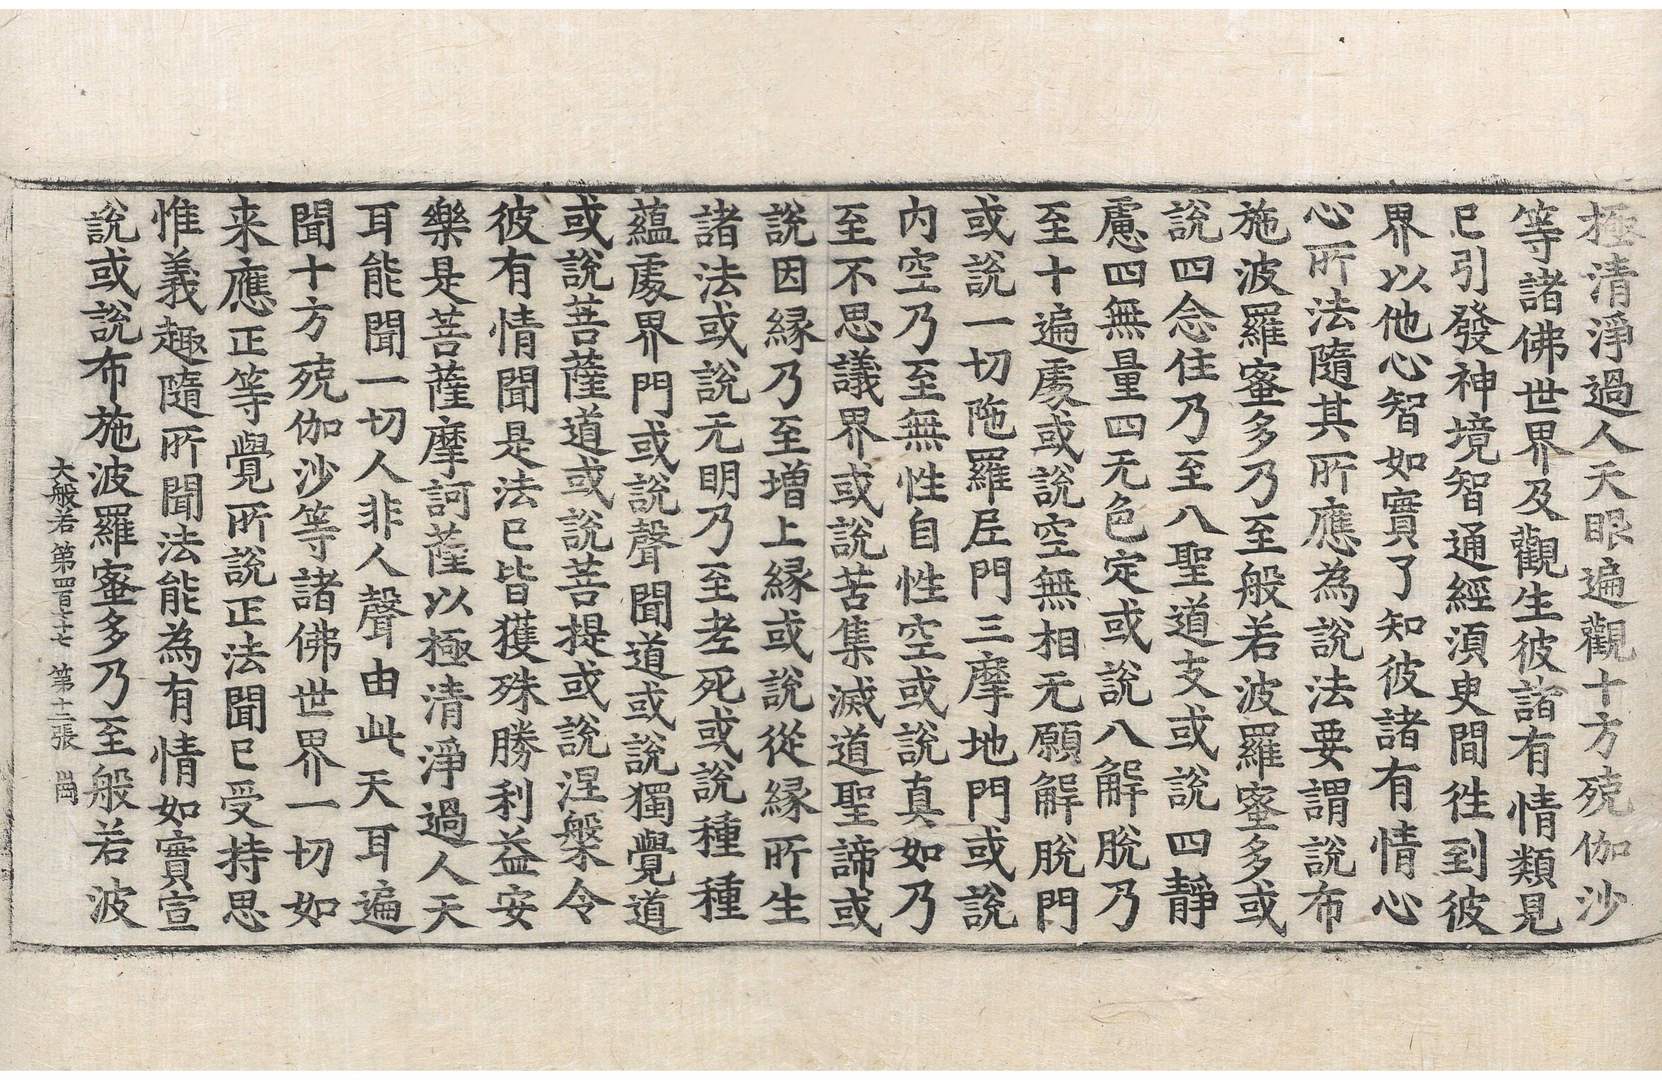 極清淨過人天眼遍觀十方殑伽沙
等諸佛世界及觀生彼諸有情類見
已引發神境智通經湏臾間徃到彼
界以他心智如實了知彼諸有情心
心所法隨其所應為說法要謂說布
施波羅蜜多乃至般若波羅蜜多或
說四念住乃至八聖道支或說四靜
慮四無量四无色定或說八解脫乃
至十遍處或說空無相无願解脫門
或說一切陁羅尼門三摩地門或說
內空乃至無性自性空或說真如乃
至不思議界或說苦集滅道聖諦或
說因縁乃至增上縁或說從縁所生
諸法或說无明乃至老死或說種種
蘊處界門或說聲聞道或說獨覺道
或說菩薩道或說菩提或說涅槃令
彼有情聞是法已皆獲殊勝利益安
樂是菩薩摩訶薩以極清淨過人天
耳能聞一切人非人聲由此天耳遍
聞十方殑伽沙等諸佛世界一切如
来應正等覺所說正法聞已受持思
惟義趣隨所聞法能為有情如實宣
說或說布施波羅蜜多乃至般若波
大般若 第四百 七 第十二張 崗